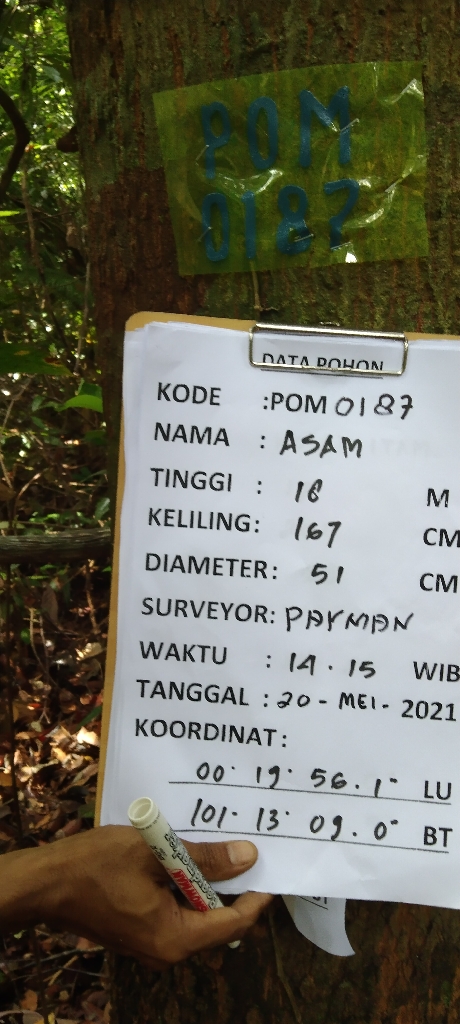 POM
0187
DATA POHON
KODE :POM 0187
NAMA : ASAM
TINGGI : 16 M
KELILING: 167 CM
DIAMETER: 51 CM
SURVEYOR: PAYMAN
WAKTU : 14.15 WIB
TANGGAL : 20-MEI-2021
KOORDINAT:
00° 19' 56.1" LU
101° 13' 09.0" BT